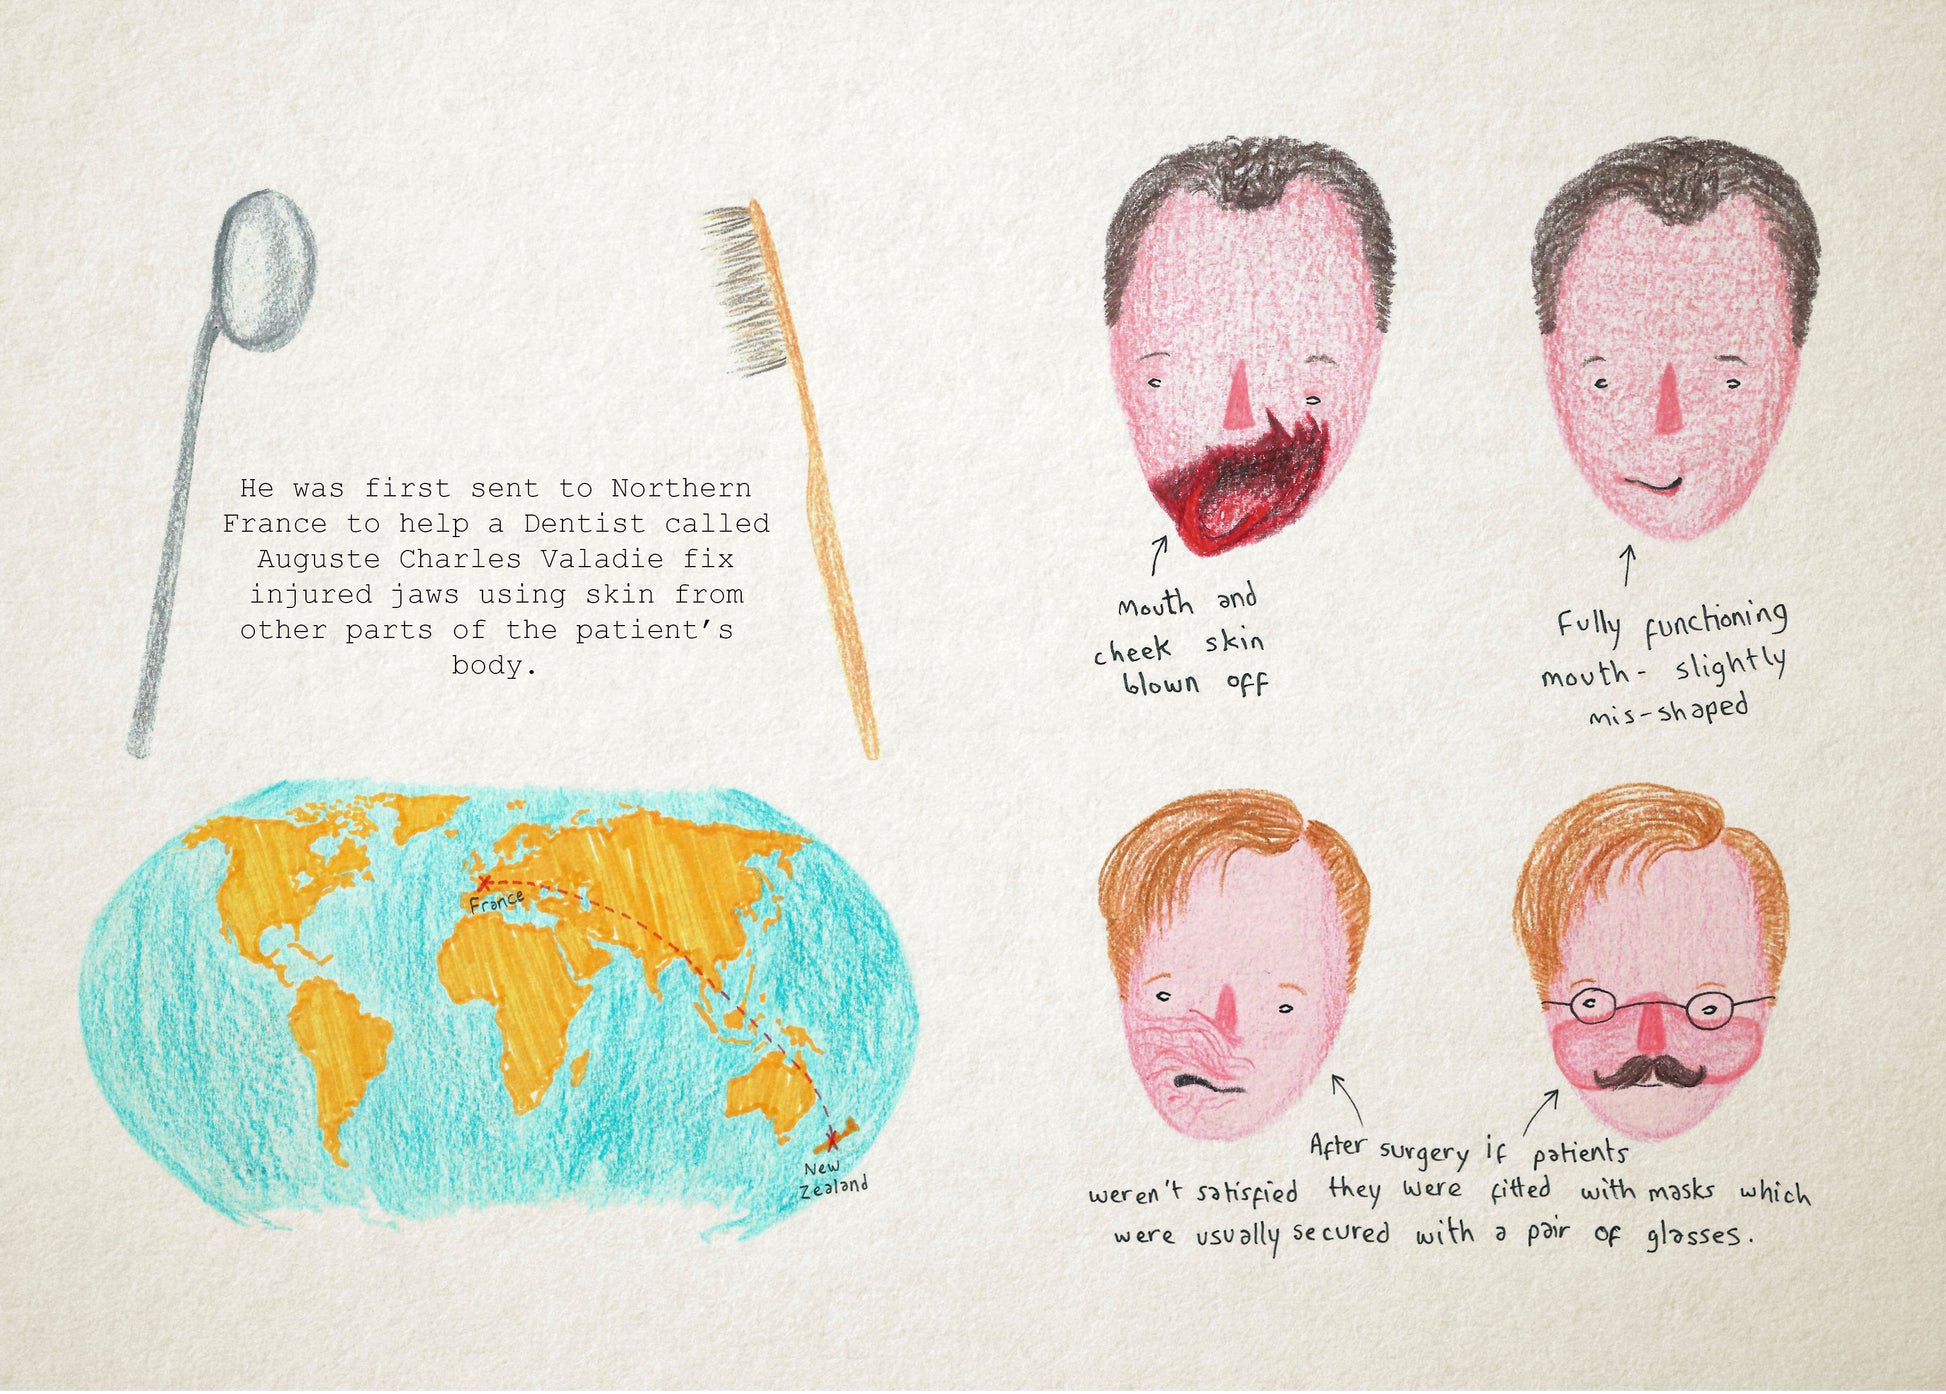 He was first sent to Northern
France to help a Dentist called
Auguste Charles Valadie fix
injured jaws using skin from
other parts of the patient's
body.
France
New
Zealand
Mouth and
cheek skin
blown off
Fully functioning
mouth- slightly
mis-shaped
After surgery if patients
weren't satisfied they were fitted with masks which
were usually secured with a pair of glasses.